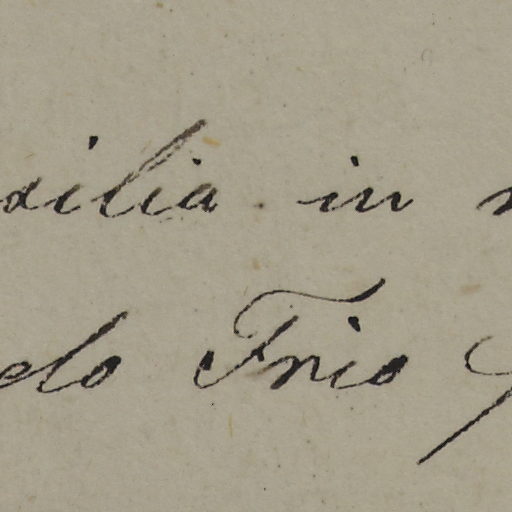 xilia in
elo Frio